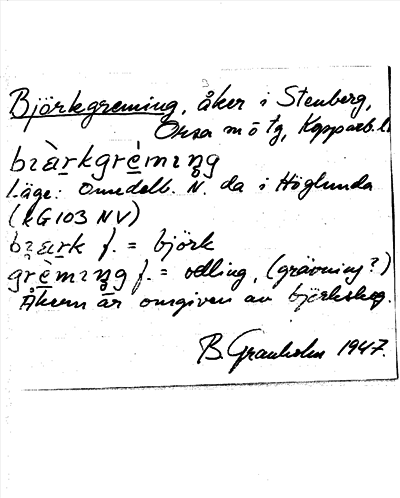 Björkgreming, åker i Stenberg,
Orsa sn o tg, Kopparb. l.
bıàrkgrèmıŋg
Läge: Omedelb. N. da i Höglunda
(kG103 NV)
bıark f. = björk
grèmıŋg f. = odling, (grävning?)
Åkern är omgiven av björkskog.
B. Granholm 1947.